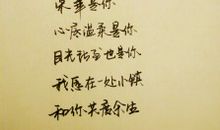 荣华是你
心底温柔是你
目光所至也是你
我愿在一处小镇
和你共度余生